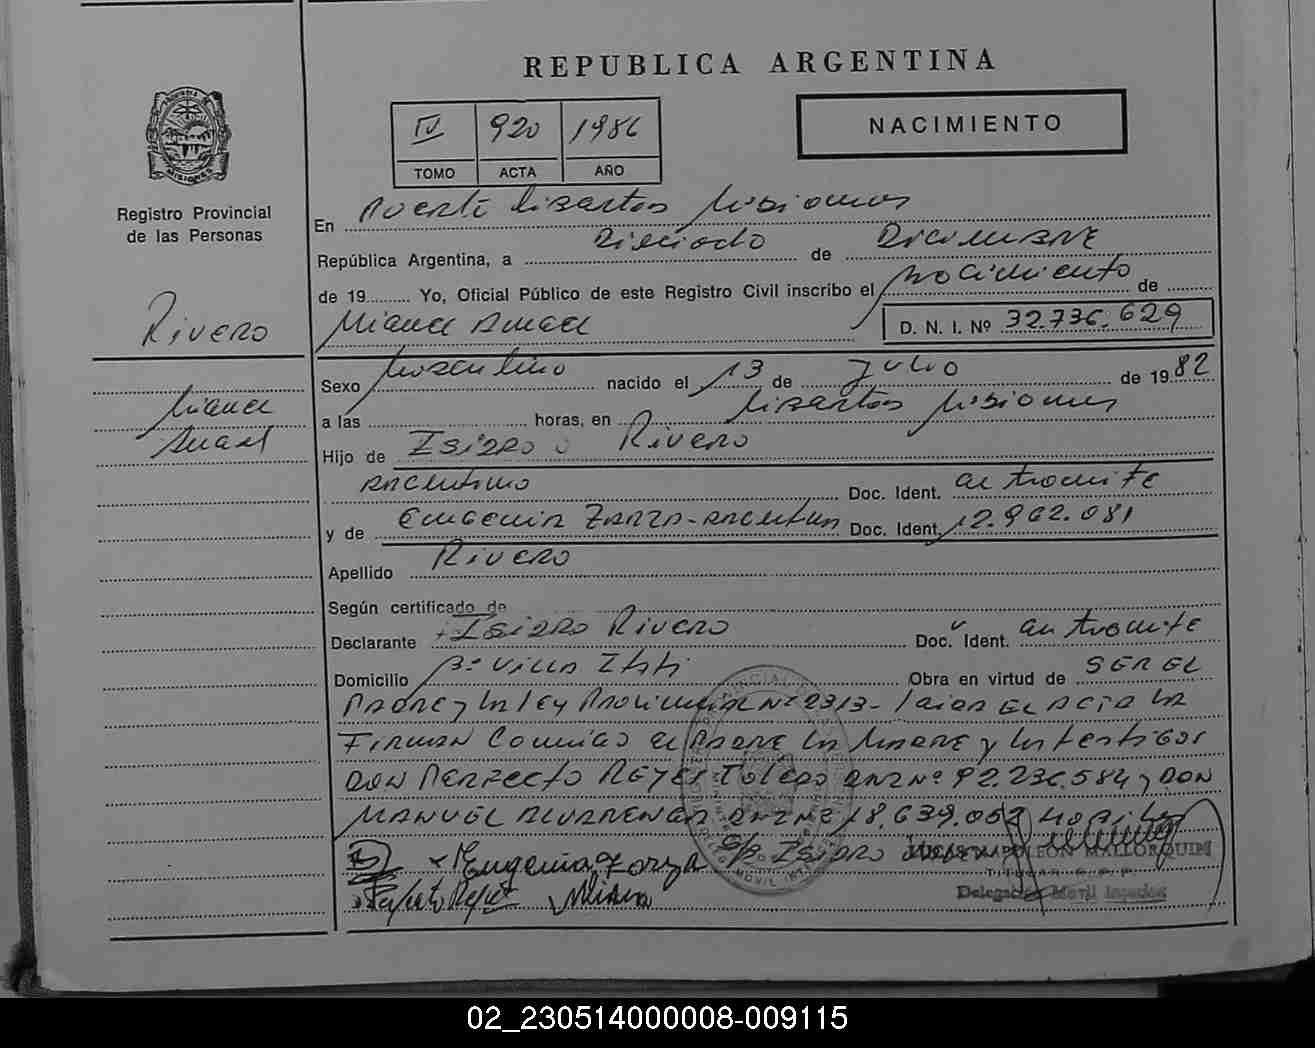 REPUBLICA ARGENTINA
IV 920 1986
TOMO ACTA AÑO
NACIMIENTO
MISIONES
Registro Provincial
de las Personas
Rivero
Miguel
Angel
En Puerto Libertad Misiones
República Argentina, a Dieciocho de Diciembre
de 19........ Yo, Oficial Público de este Registro Civil inscribo el nacimiento de
Miguel Angel D. N. I. Nº 32.736.629
Sexo Masculino nacido el 13 de Julio de 1982
a las horas, en Libertad Misiones
Hijo de Isidro Rivero
Argentino Doc. Ident. en tramite
y de Eugenia Zarza - Argentina Doc. Ident. 12.962.081
Apellido Rivero
Según certificado de
Declarante Isidro Rivero Doc. Ident. en tramite
Domicilio Bº Villa Itati Obra en virtud de ser el
Padre y la ley Provincial Nº 2313 - Leida el acta la
Firman conmigo el Padre la Madre y los testigos
Don Perfecto Reyes Toledo DNI Nº 92.236.584 y Don
Manuel Alvarenga DNI Nº 18.639.052
x Eugenia Zarza Isidro
LUCAS NAPOLEON MALLORQUIN
TITULAR R.P.P.
Delegación Movil
02_230514000008-009115